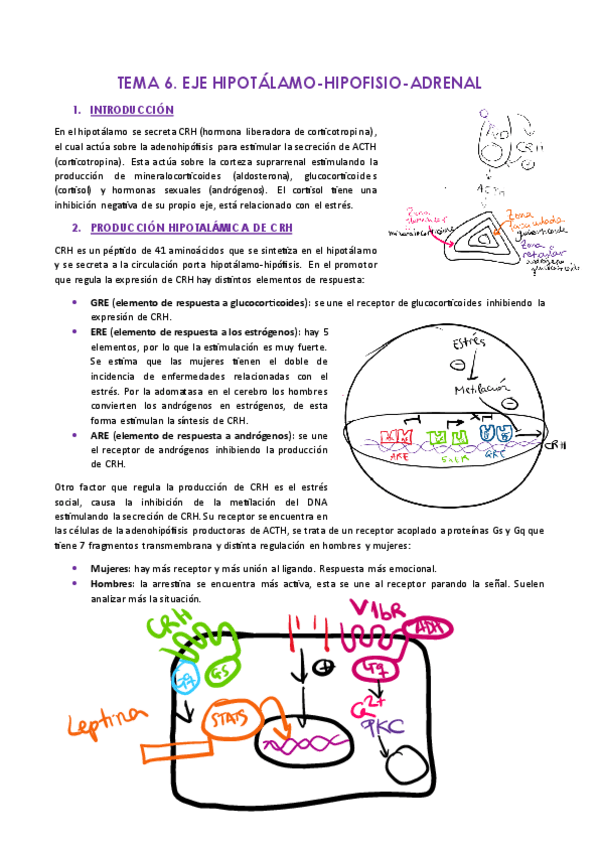 TEMA 6. EJE HIPOTÁLAMO-HIPOFISIO-ADRENAL
1. INTRODUCCIÓN
En el hipotálamo se secreta CRH (hormona liberadora de corticotropina),
el cual actúa sobre la adenohipófisis para estimular la secreción de ACTH
(corticotropina). Esta actúa sobre la corteza suprarrenal estimulando la
producción de mineralocorticoides (aldosterona), glucocorticoides
(cortisol) y hormonas sexuales (andrógenos). El cortisol tiene una
inhibición negativa de su propio eje, está relacionado con el estrés.
CRH
ACTH
Zona
Zona fasciculada
glucocorticoide
Zona reticular
2. PRODUCCIÓN HIPOTALÁMICA DE CRH
CRH es un péptido de 41 aminoácidos que se sintetiza en el hipotálamo
y se secreta a la circulación porta hipotálamo-hipófisis. En el promotor
que regula la expresión de CRH hay distintos elementos de respuesta:
• GRE (elemento de respuesta a glucocorticoides): se une el receptor de glucocorticoides inhibiendo la
expresión de CRH.
• ERE (elemento de respuesta a los estrógenos): hay 5
elementos, por lo que la estimulación es muy fuerte.
Se estima que las mujeres tienen el doble de
incidencia de enfermedades relacionadas con el
estrés. Por la adomatasa en el cerebro los hombres
convierten los andrógenos en estrógenos, de esta
forma estimulan la síntesis de CRH.
• ARE (elemento de respuesta a andrógenos): se une
el receptor de andrógenos inhibiendo la producción
de CRH.
Estrés
Metilación
ARE
GRE
CRH
Otro factor que regula la producción de CRH es el estrés
social, causa la inhibición de la metilación del DNA
estimulando la secreción de CRH. Su receptor se encuentra en
las células de la adenohipófisis productoras de ACTH, se trata de un receptor acoplado a proteínas Gs y Gq que
tiene 7 fragmentos transmembrana y distinta regulación en hombres y mujeres:
• Mujeres: hay más receptor y más unión al ligando. Respuesta más emocional.
• Hombres: la arrestina se encuentra más activa, esta se une al receptor parando la señal. Suelen
analizar más la situación.
CRH
V1bR
ADH
Gq
GS
Gq
Ca2+
PKC
Leptina
STATS